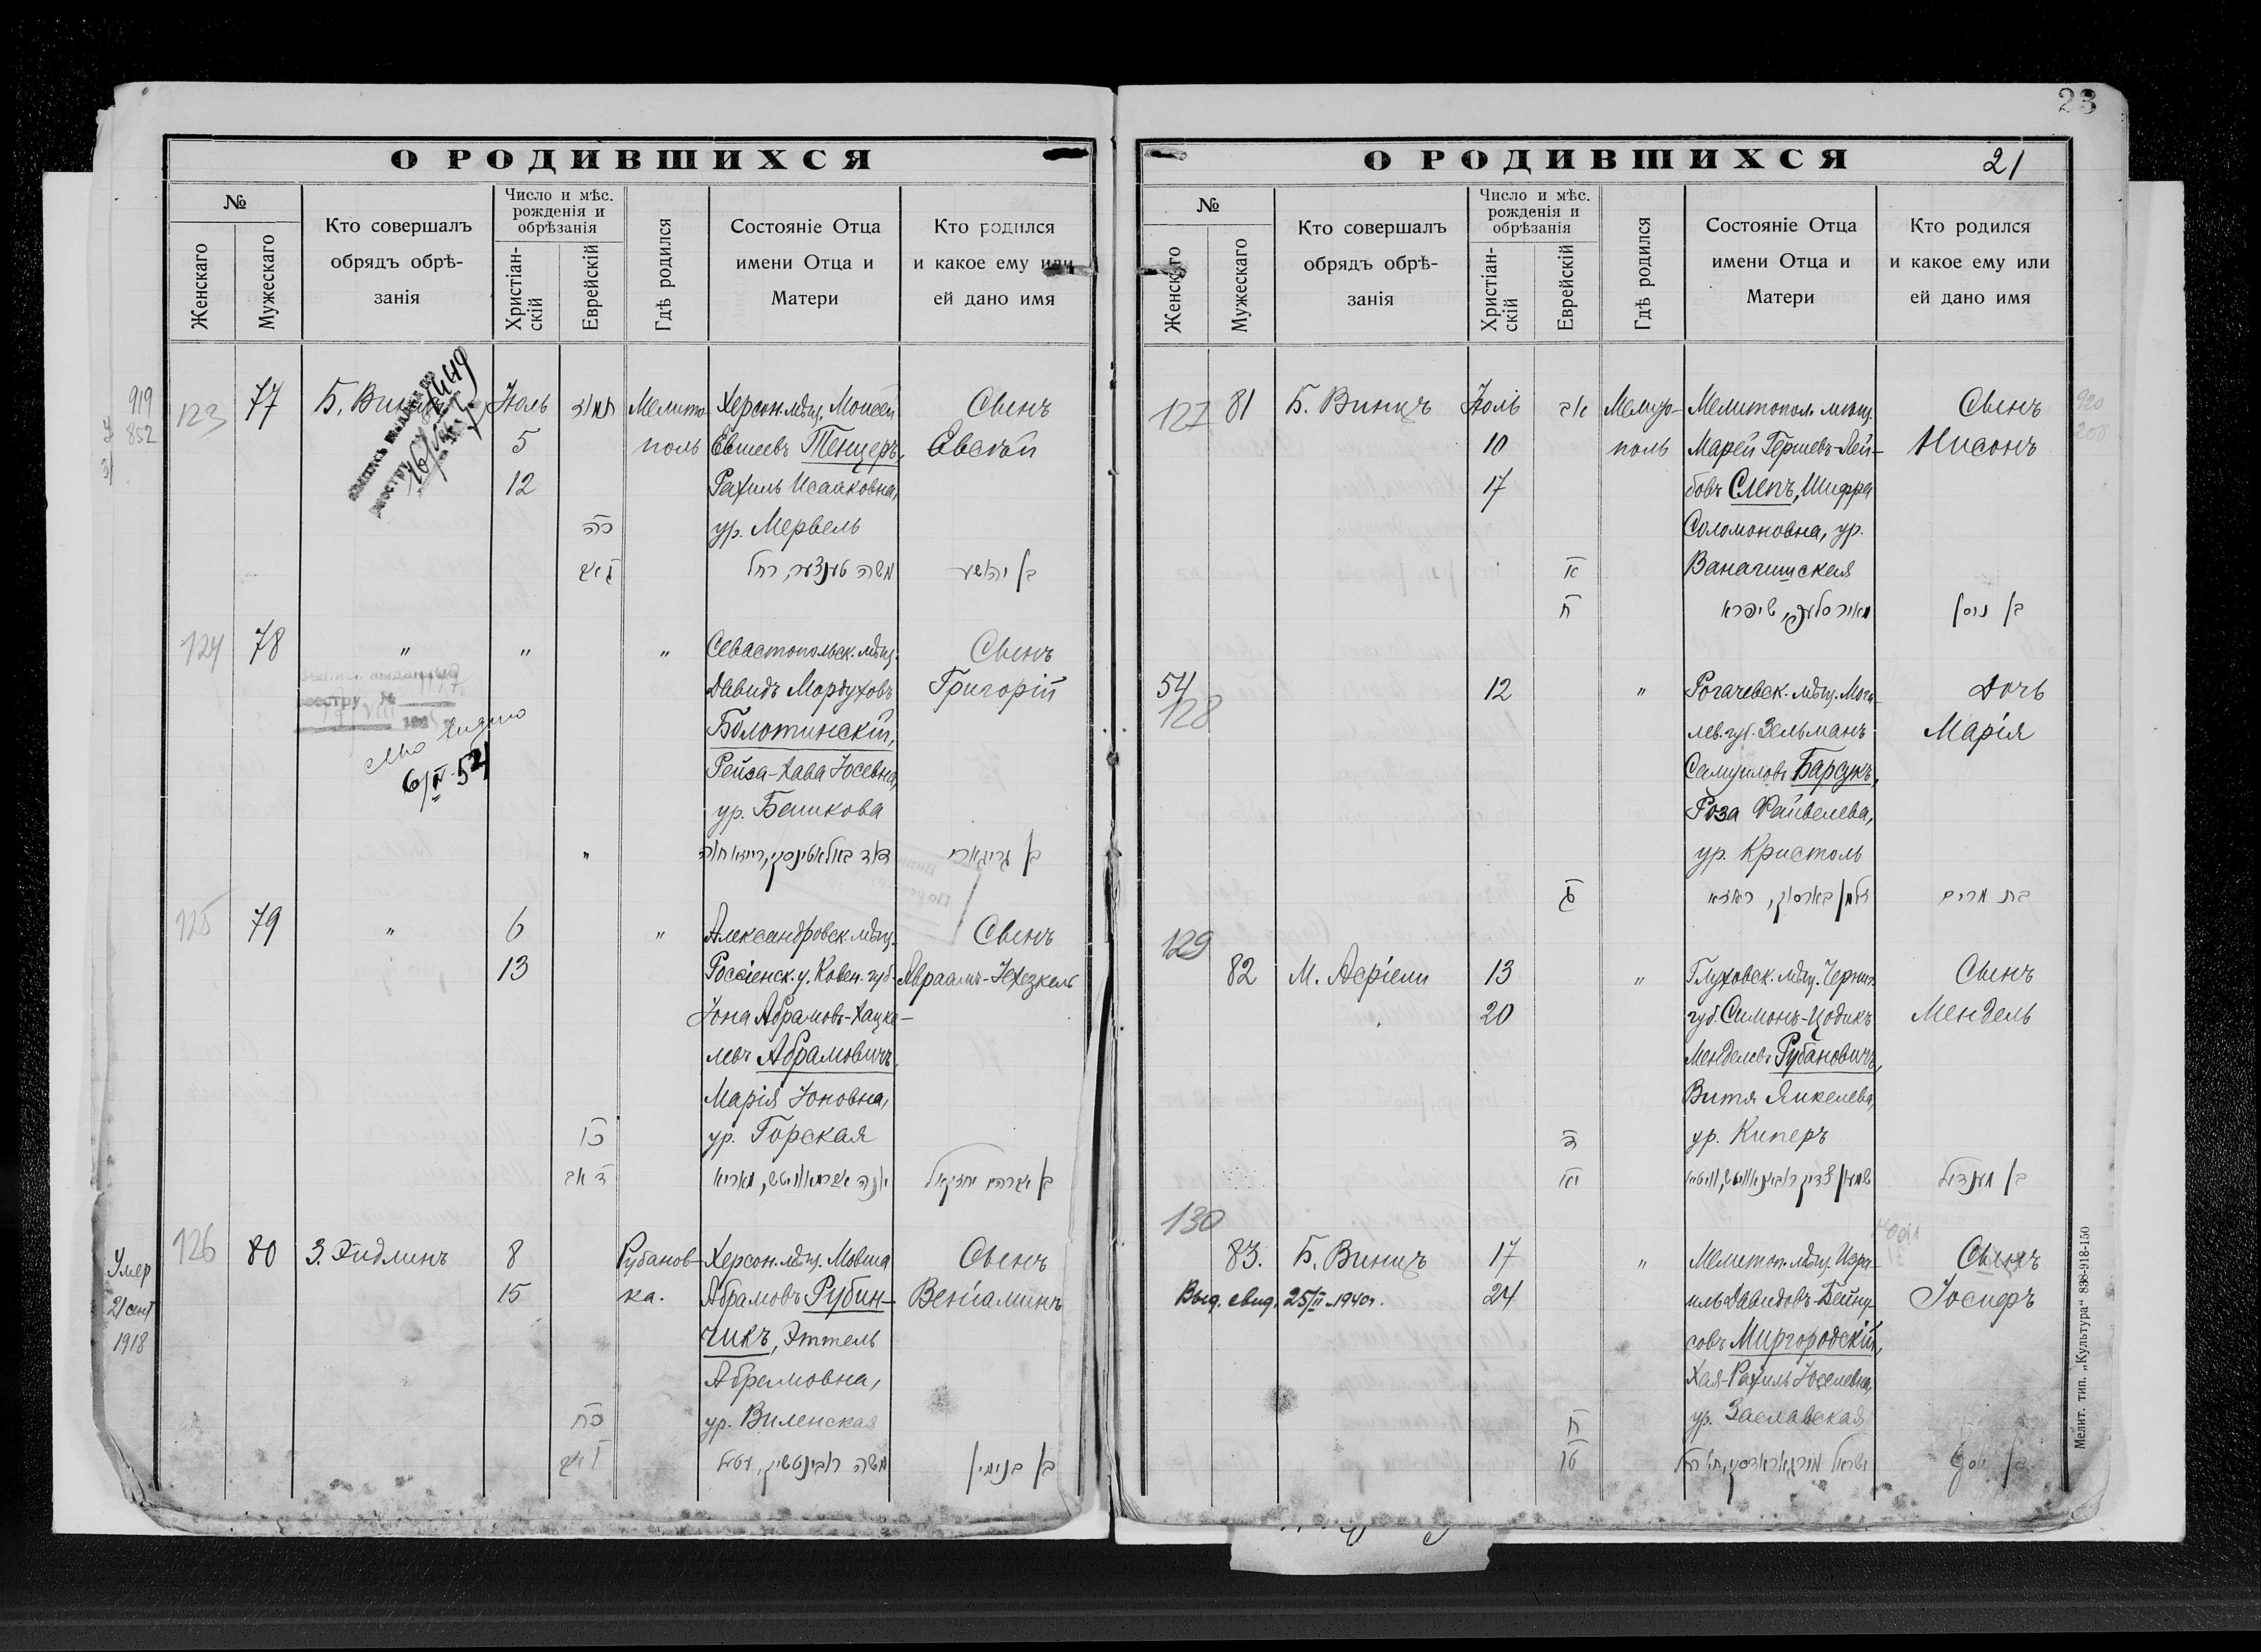 О РОДИВШИХСЯ
№
Женскаго
Мужескаго
Кто совершалъ
обрядъ обрѣ-
занія
Число и мѣс.
рожденія и
обрѣзанія
Христіан-
скій
Еврейскій
Гдѣ родился
Состояніе Отца
имени Отца и
Матери
Кто родился
и какое ему или
ей дано имя
919
852
123
77
Б. Виницъ
Іюль
5
12
תמוז
כה
Мелито-
поль
Херсон. мѣщ. Моисей
Евшеевъ Тенцеръ,
Рахиль Исааковна,
ур. Мервель
משה טענצער, רחל
Сынъ
Евсѣй
בן יהושע
124
78
"
"
"
Севастопольск. мѣщ.
Давидъ Мордуховъ
Болотинскій,
Рейза-Хава Іосевна,
ур. Бешкова
Сынъ
Григорій
6/IV 54
"
125
79
"
6
13
"
כו
ד אב
Александровск. мѣщ.
Россіенск. у. Ковен. губ.
Іона Абрамовъ-Хацке-
левъ Абрамовичъ,
Марія Іоновна,
ур. Горская
Сынъ
Авраамъ-Іехезкель
בן אברהם יחזקאל
Умер
21 сент
1918
126
80
З. Эйдлинъ
8
15
כח
Рубанов-
ка.
Херсон. мѣщ. Мовша
Абрамовъ Рубин-
чикъ, Эттель
Абрамовна,
ур. Виленская
משה רובינטשיק, עטל
Сынъ
Веніаминъ
בן בנימין
23
О РОДИВШИХСЯ
21
№
Женскаго
Мужескаго
Кто совершалъ
обрядъ обрѣ-
занія
Число и мѣс.
рожденія и
обрѣзанія
Христіан-
скій
Еврейскій
Гдѣ родился
Состояніе Отца
имени Отца и
Матери
Кто родился
и какое ему или
ей дано имя
127
81
Б. Виницъ
Іюль
10
17
אב
א
ח
Мелито-
поль
Мелитопол. мѣщ.
Марей Гершевъ-Лей-
бовъ Слепъ, Шифра
Соломоновна, ур.
שיפרא
Сынъ
Нисонъ
בן ניסן
54
128
12
"
Рогачевск. мѣщ. Моги-
лев. губ. Зельманъ
Самуиловъ Барсукъ,
Роза Файвелева,
ур. Кристоль
Дочь
Марія
בת מרים
129
82
М. Асріели
13
20
ד
יא
"
Глуховск. мѣщ. Черниг.
губ. Симонъ-Цодикъ
Менделевъ Рубановичъ,
Витя Янкелева,
ур. Киперъ
Сынъ
Мендель
בן מענדיל
130
83.
Б. Виницъ
17
24
ח
טו
"
Выд. свид. 25/II 1940г.
Мелитоп. мѣщ. Изра-
иль Давидовъ-Бейну-
совъ Миргородскій,
Хая-Рахиль Іоселевна,
ур. Заславская
Сынъ
Іосифъ
בן יוסף
Мелит. тип. „Культура“ 838-918-150